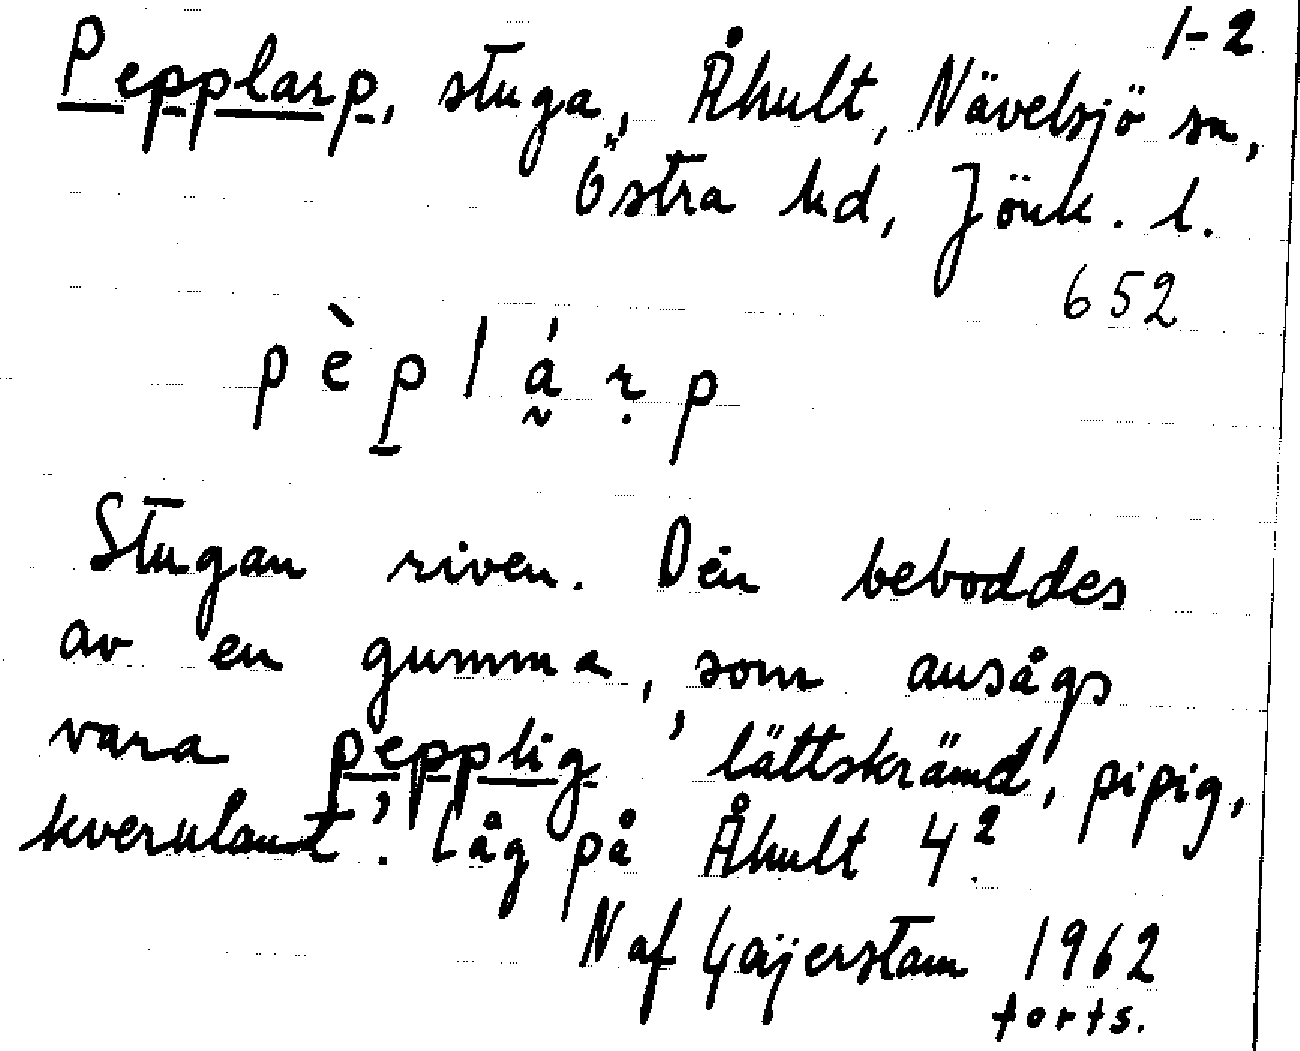 1-2
Pepplarp, stuga, Åhult, Nävelsjö sn,
Östra hd, Jönk. l.
652
pèp̱lá̰ṛp
Stugan riven. Den beboddes
av en gumma, som ansågs
vara pepplig, 'lättskrämd, pipig,
kverulant'. Låg på Åhult 4²
N af Gajerstam 1962
forts.